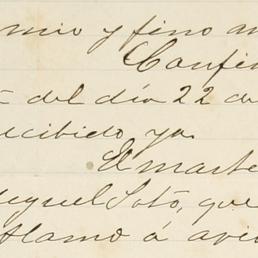 mio y fino am
Confir
del día 22 de
recibido ya.
El marte
iguel Soto, que
Alamo á avis